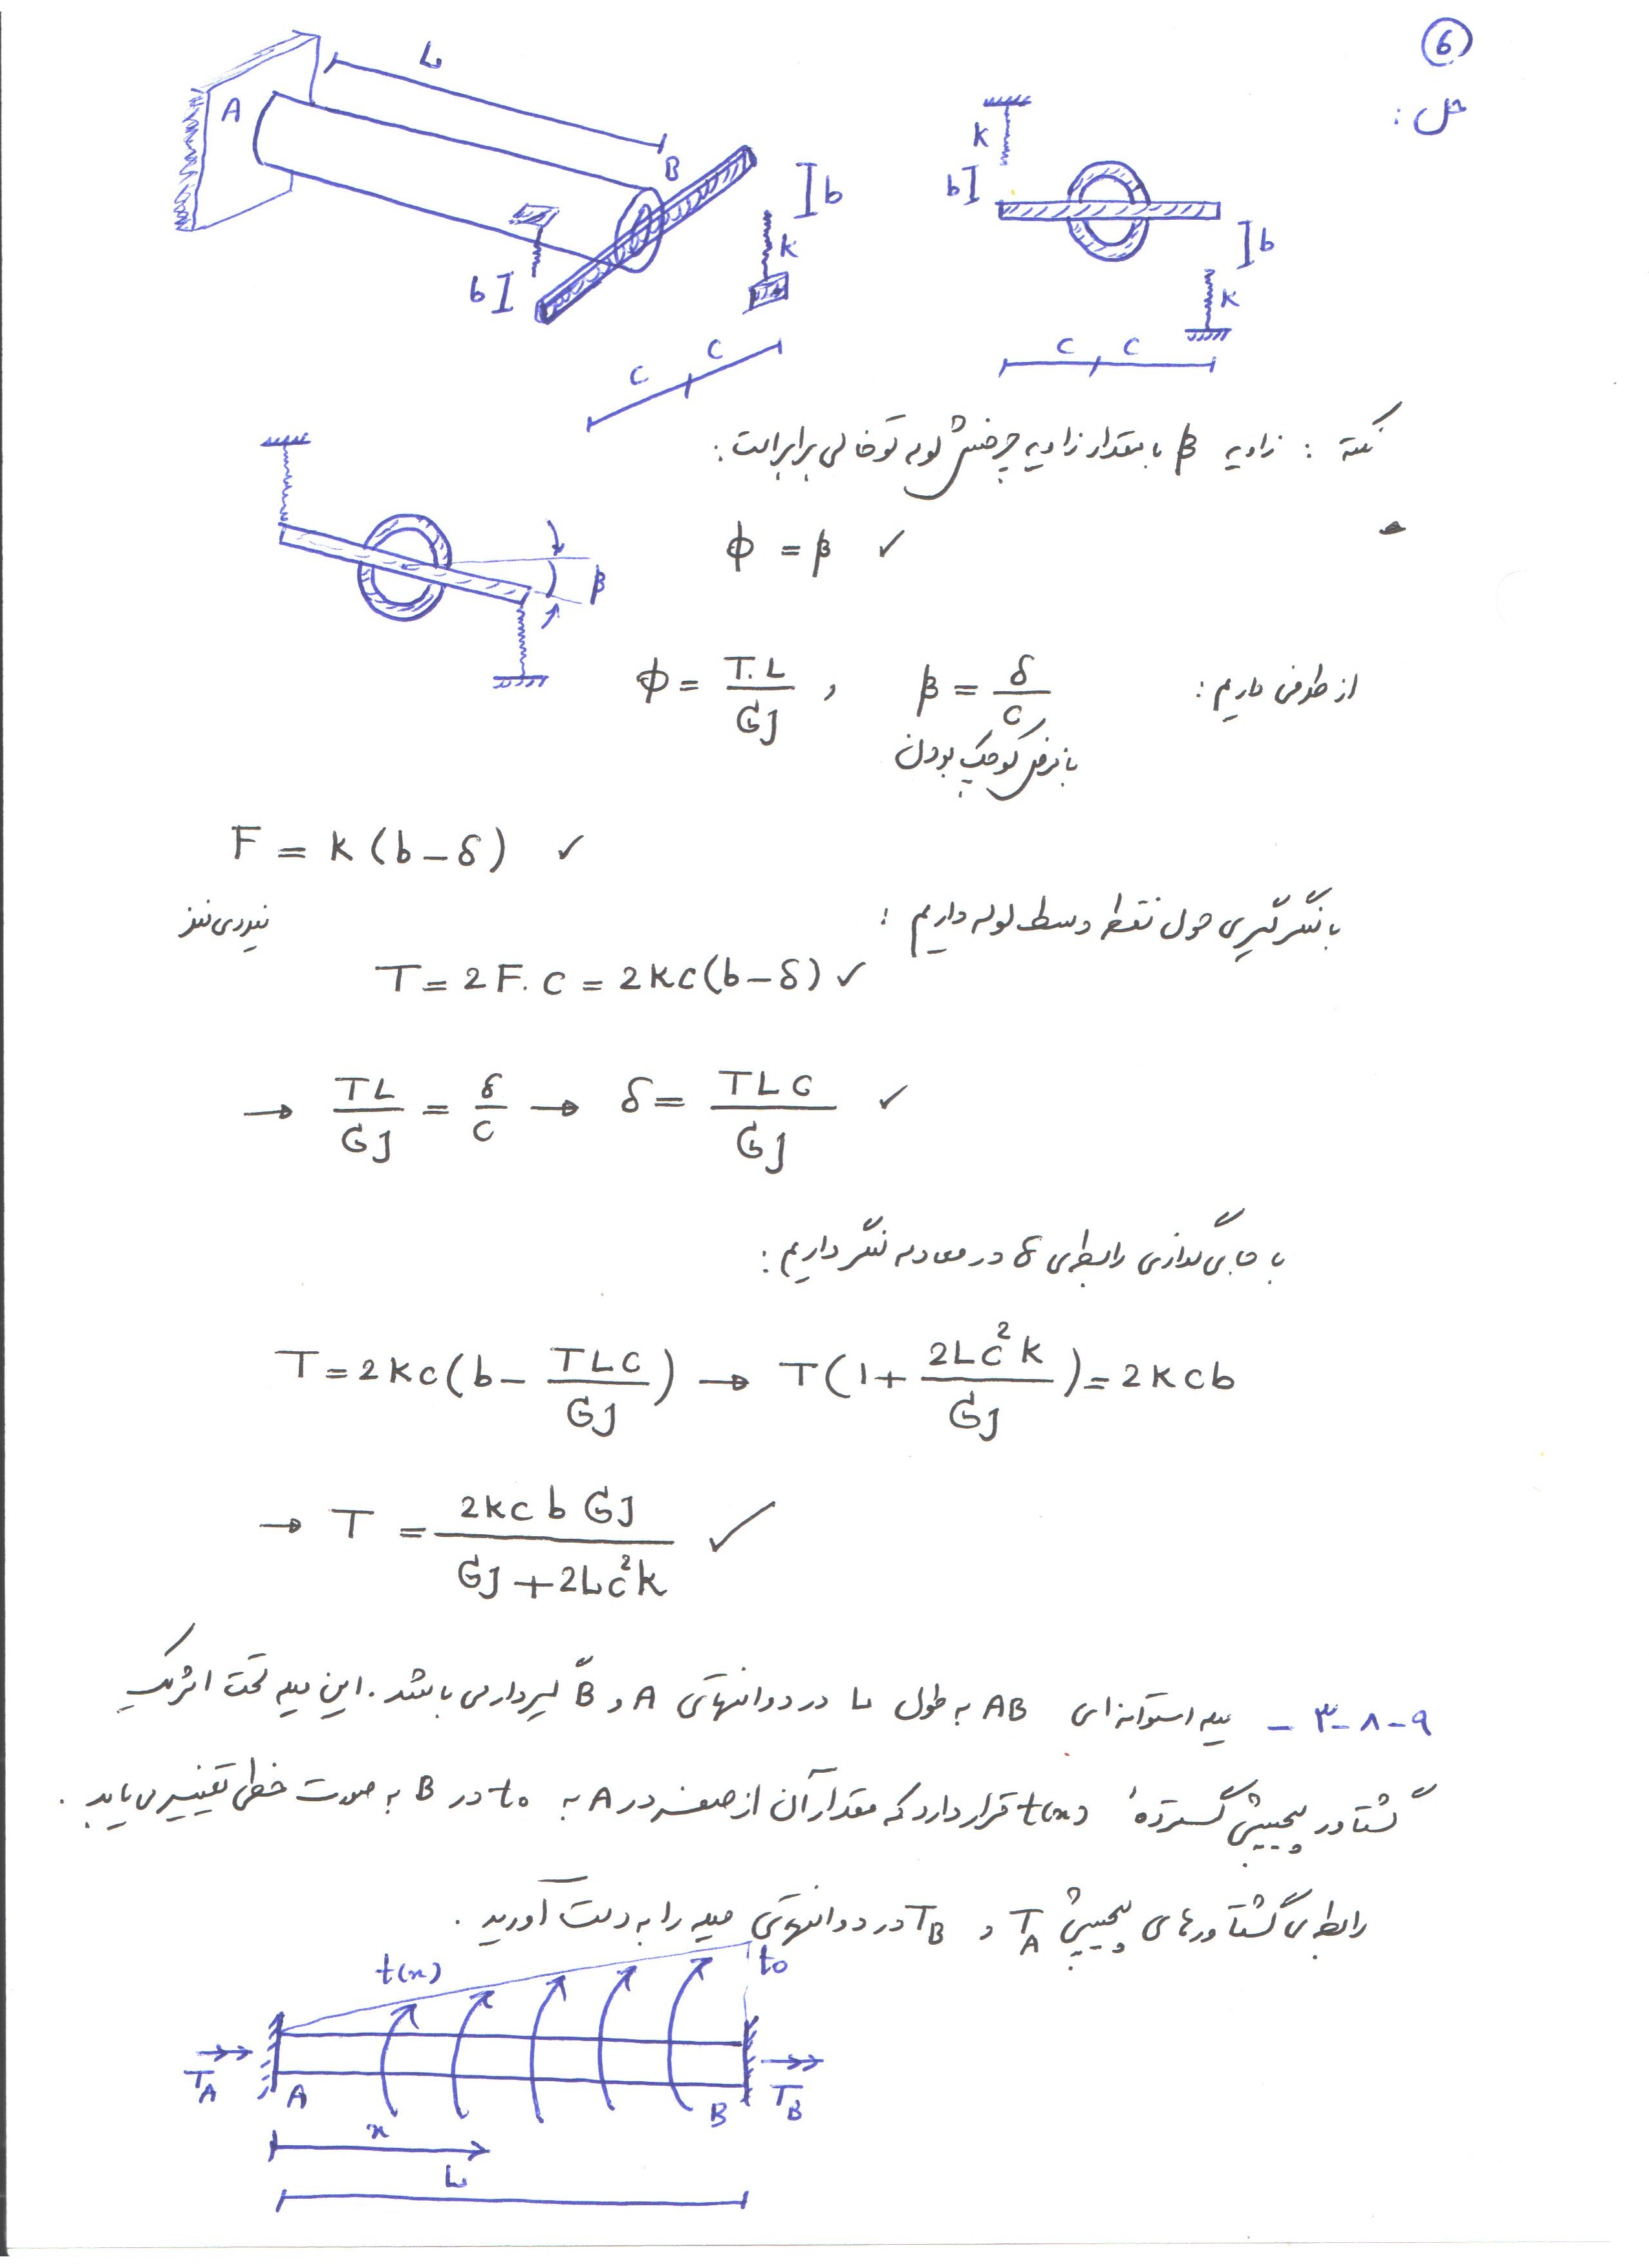 6
حل :
L
A
B
b
k
b
c c
k
b
b
k
c c
نکته : زاویه β با مقدار زاویه چرخش لوله توخالی برابر است :
ϕ = β ✓
β
از طرفی داریم : β = δ/c , ϕ = T.L/GJ
با فرض کوچک بودن
F = k(b-δ) ✓
نیروی فنر
با لنگرگیری حول نقطه وسط لوله داریم :
T = 2F.c = 2kc(b-δ) ✓
→ TL/GJ = δ/c → δ = TLC/GJ ✓
با جایگذاری رابطه‌ی δ در معادله لنگر داریم :
T = 2kc(b - TLC/GJ) → T(1 + 2Lc²k/GJ) = 2kcb
→ T = 2kcb GJ / GJ + 2Lc²k ✓
۳-۸-۹ - میله استوانه‌ای AB به طول L در دو انتهای A و B گیردار می باشد . این میله تحت اثر یک
گشتاور پیچشی گسترده t(x) قرار دارد که مقدار آن از صفر در A به t₀ در B به صورت خطی تغییر می یابد .
رابطه‌ی گشتاورهای پیچشی T_A و T_B در دو انتهای میله را به دست آورید .
t(x)
t₀
T_A
A
B
T_B
x
L